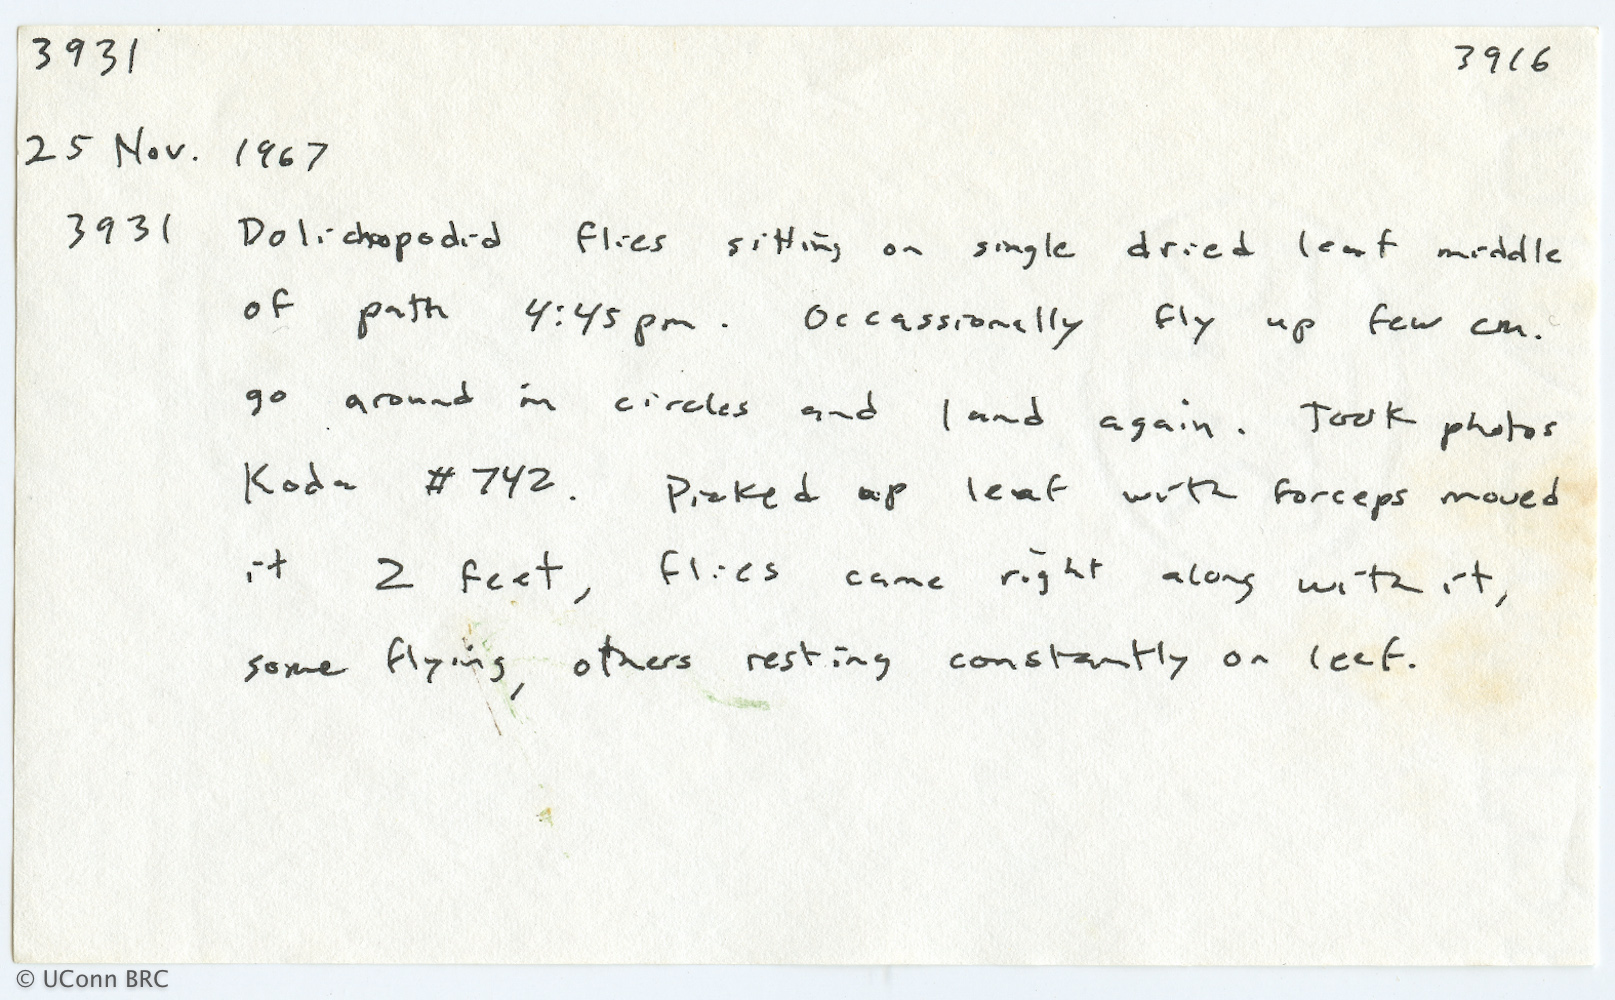 3931 3916
25 Nov. 1967
3931 Dolichopodid flies sitting on single dried leaf middle
of path 4:45 pm. Occassionally fly up few cm.
go around in circles and land again. Took photos
Koda #742. Picked up leaf with forceps moved
it 2 feet, flies came right along with it,
some flying, others resting constantly on leaf.
© UConn BRC